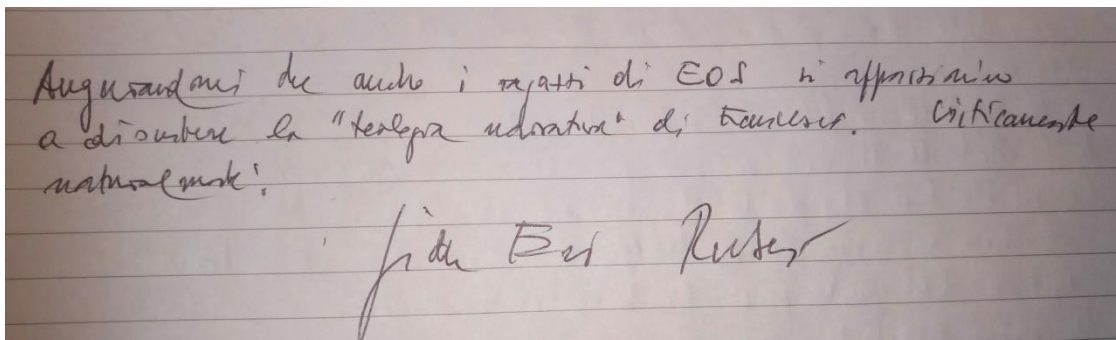 Augurandomi che anche i ragazzi di EOS si appassionino
a discutere la "teologia narrativa" di Francesco. Criticamente
naturalmente!